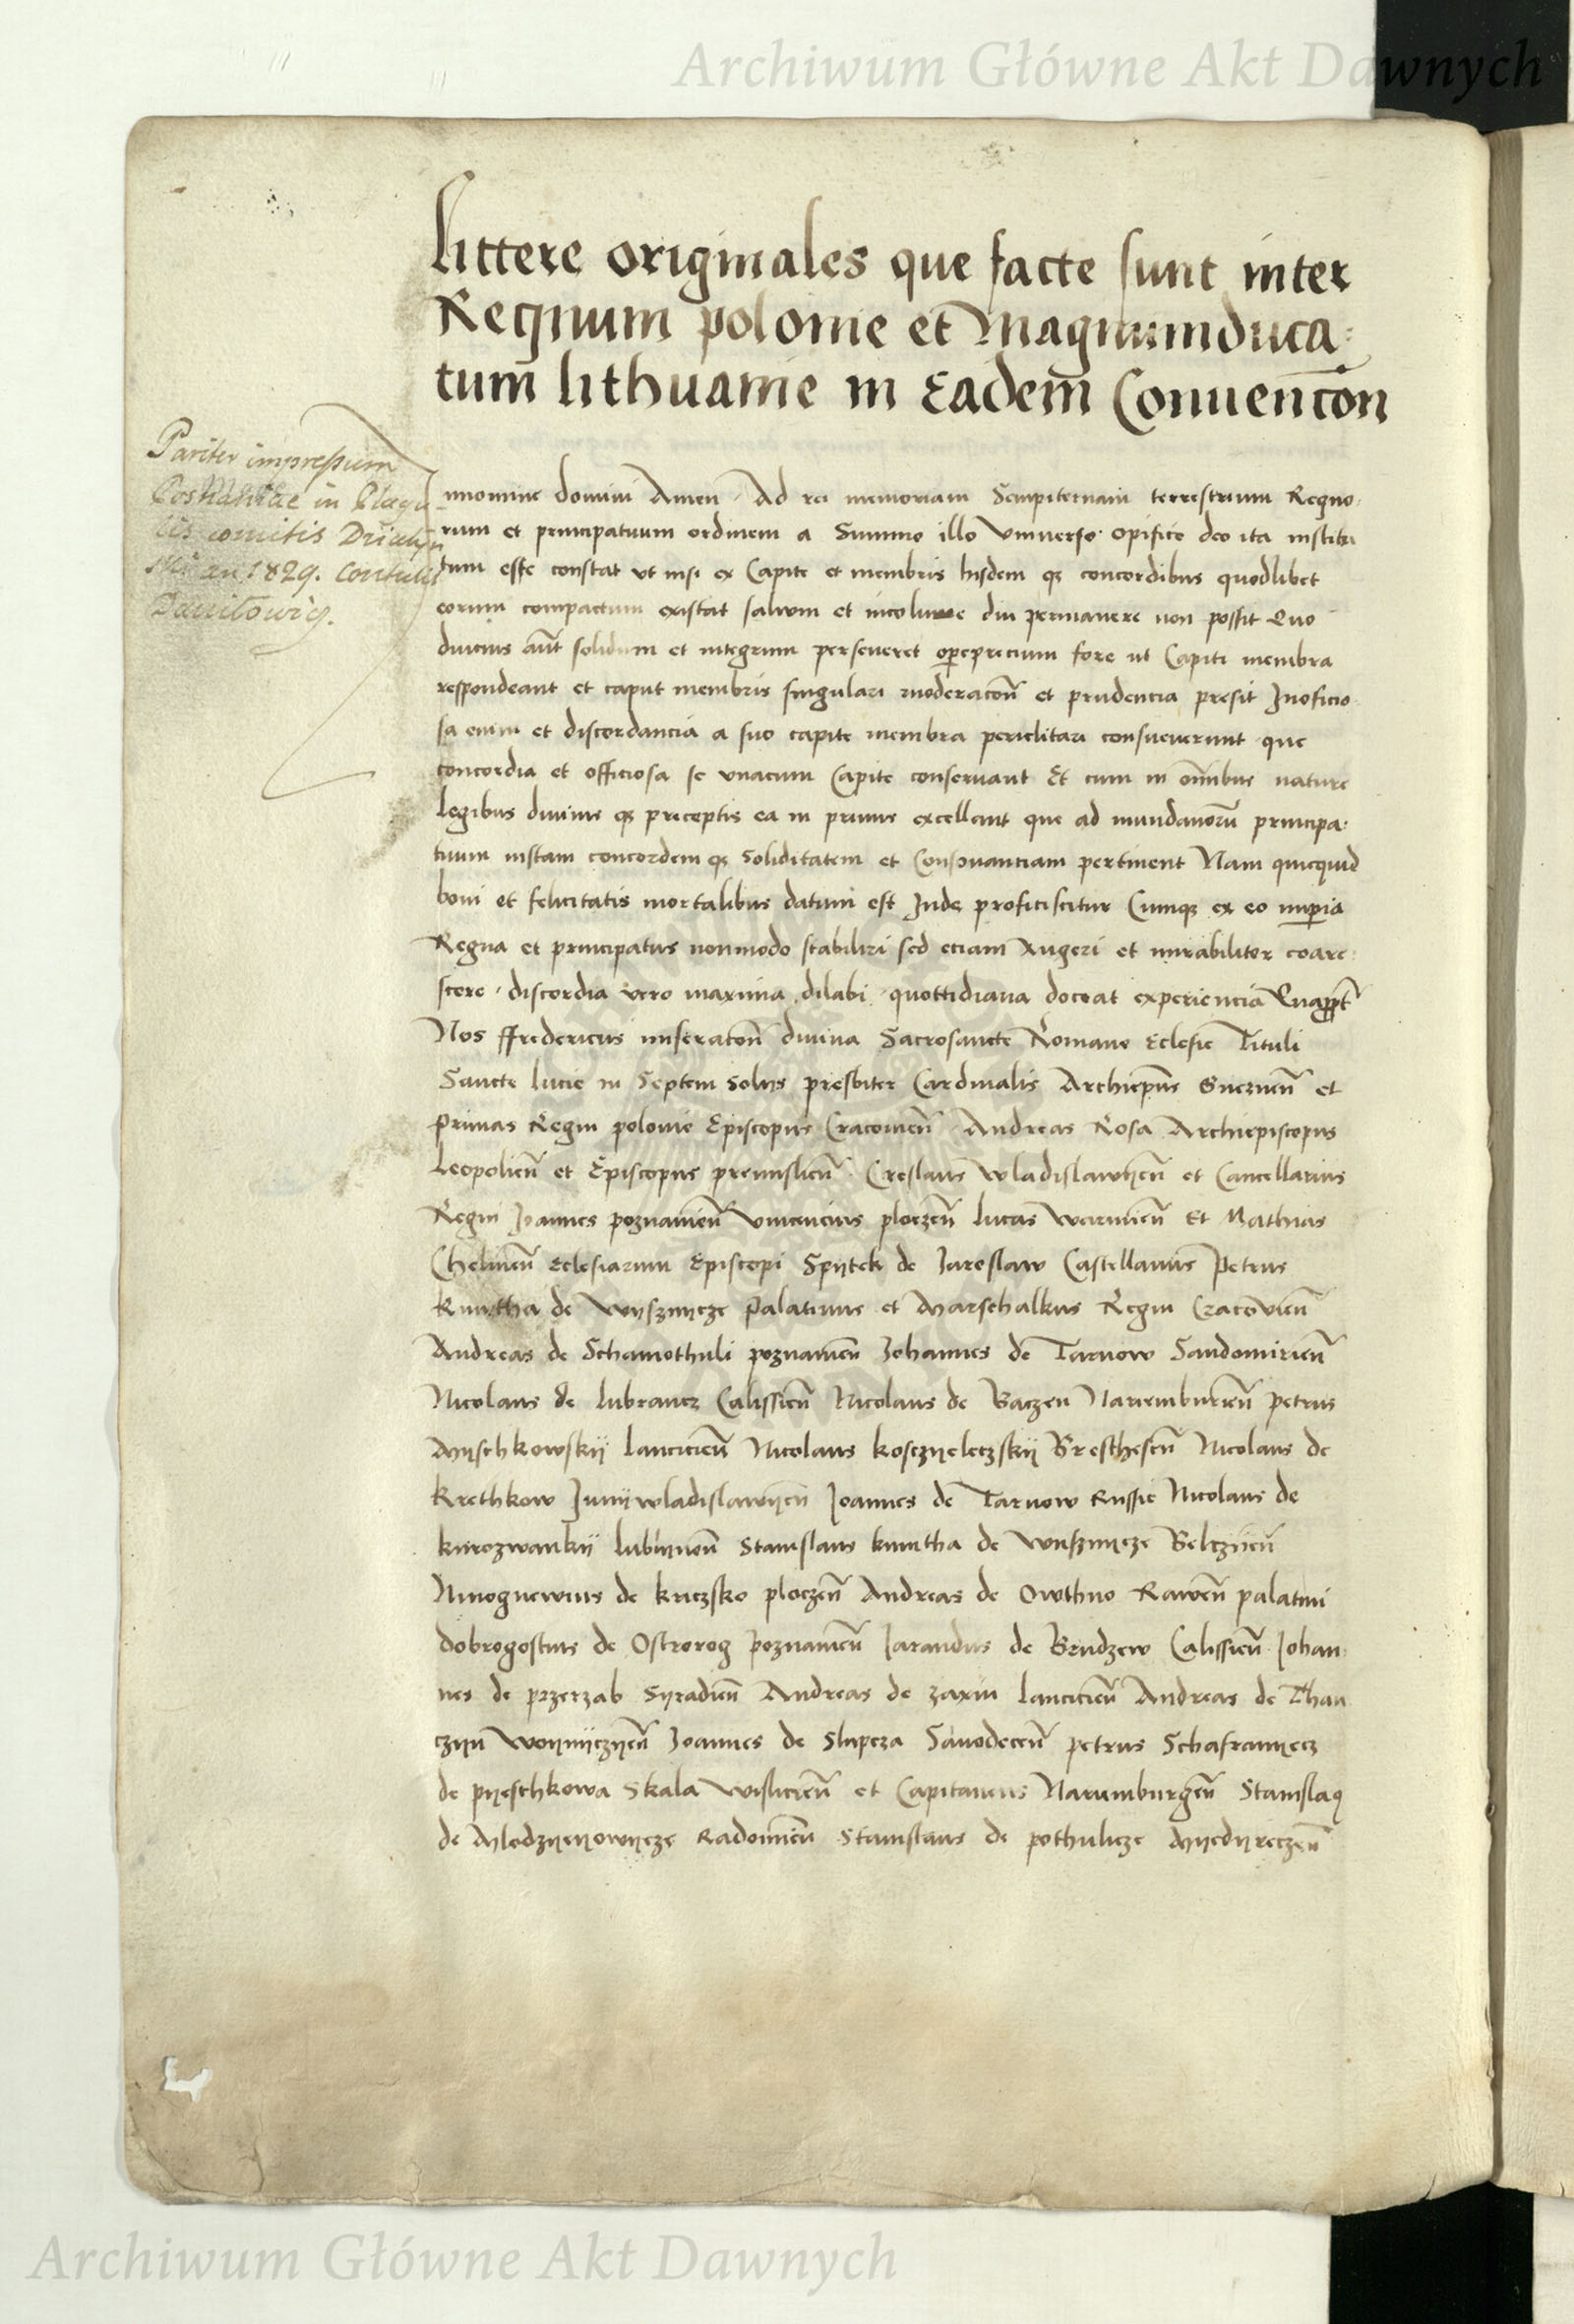 Archiwum Główne Akt Dawnych
littere originales que facte sunt inter
Regnum polonie et Magnumduca:
tum lithuanie in Eadem Convencōn
Pariter impressum
Posnaniae in Plagu-
lis comitis Działyn
ski an 1829. contulit
Daniłowicz.
nnomine domini Amen. Ad rei memoriam Sempiternam terrestrium Regno.
rum et principatuum ordinem a Summo illo Vniverse opifice deo ita institu
tum esse constat vt nisi ex Capite et membris hisdem qȝ concordibus quodlibet
eorum compactum existat salvum et incolume diu permanere non possit Quo
diucius aūt solidum et integrum perseveret operеprecium fore ut Capiti membra
respondeant et caput membris singulari moderacōn̄ et prudencia presit Inoficio
sa enim et discordancia a suo capite membra periclitari consueverunt que
concordia et officiosa se vnacum Capite conservant Et cum in om̄ibus nature
legibus divinis qȝ preceptis ea in primis excellant que ad mundanorū principa:
tuum iustam concordem qȝ soliditatem et Consonanciam pertinent Nam quicquid
boni et felicitatis mortalibus datum est Inde proficiscitur Cumqȝ ex eo imperia
Regna et principatus nonmodo stabiliri sed eciam Augeri et mirabiliter coare:
scere . discordia vero maxima dilabi quottidiana doceat experiencia
Nos ffredericus miseracōn̄ divina Sacrosancte Romane Eclesie Tituli
Sancte lucie in Septem Solijs presbiter Cardinalis Archiepūs Gneznen̄ et
Primas Regni polonie Episcopus Cracovien̄ Andreas Rosa Archiepiscopus
Leopolien̄ et Episcopus premislien̄ Creslaus Wladislawyen̄ et Cancellarius
Regni Joannes poznanien̄ Vincencius ploczen̄ lucas Warmien̄ Et Mathias
Chelmen̄ Eclesiarum Episcopi Spytek de Jaroslaw Castellanus Petrus
Kmytha de Wyszmycze Palatinus et Marschalkus Regni Cracovien̄
Andreas de Schamothuli poznanien̄ Johannes de Tarnow Sandomirien̄
Nicolaus de lubrancz Calissien̄ Nicolaus de Baczen Mariemburien̄ Petrus
Myschkowskÿ lancicien̄ Nicolaus koscÿeleczskÿ Bresthesen̄ Nicolaus de
Krethkow Junÿwladislawyen̄ Joannes de Tarnow Russie Nicolaus de
kurozwankÿ lublynen̄ Stanislaus kmitha de Wyszmycze Belczÿen̄
Nmognewius de kriczsko ploczen̄ Andreas de Owthno Rawen̄ palatini
dobrogostius de Ostrorog poznanien̄ Jarandus de Brudzew Calissien̄ Johan
nes de przerzab Syradien̄ Andreas de zaxin lancicien̄ Andreas de Than
czyn Woynyczyen̄ Joannes de Slupcza Sandecen̄ petrus Schafranyecz
de pyeschkowa Skala Wislicien̄ et Capitaneus Mariemburgen̄ Stanislaꝗ
de Mlodzyeyowycze Radomien̄ Stanislaus de pothulicze Myedyreczen̄
Archiwum Główne Akt Dawnych